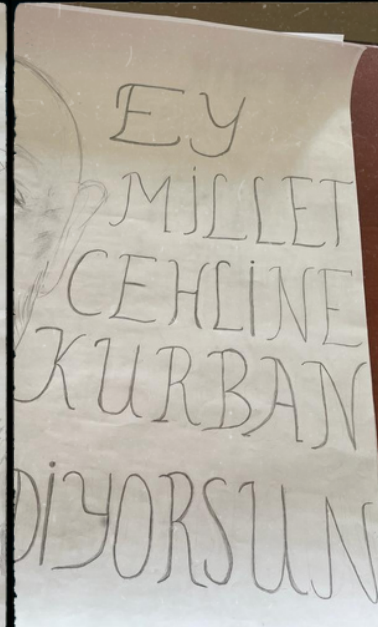 EY
MİLLET
CEHLİNE
KURBAN
DİYORSUN